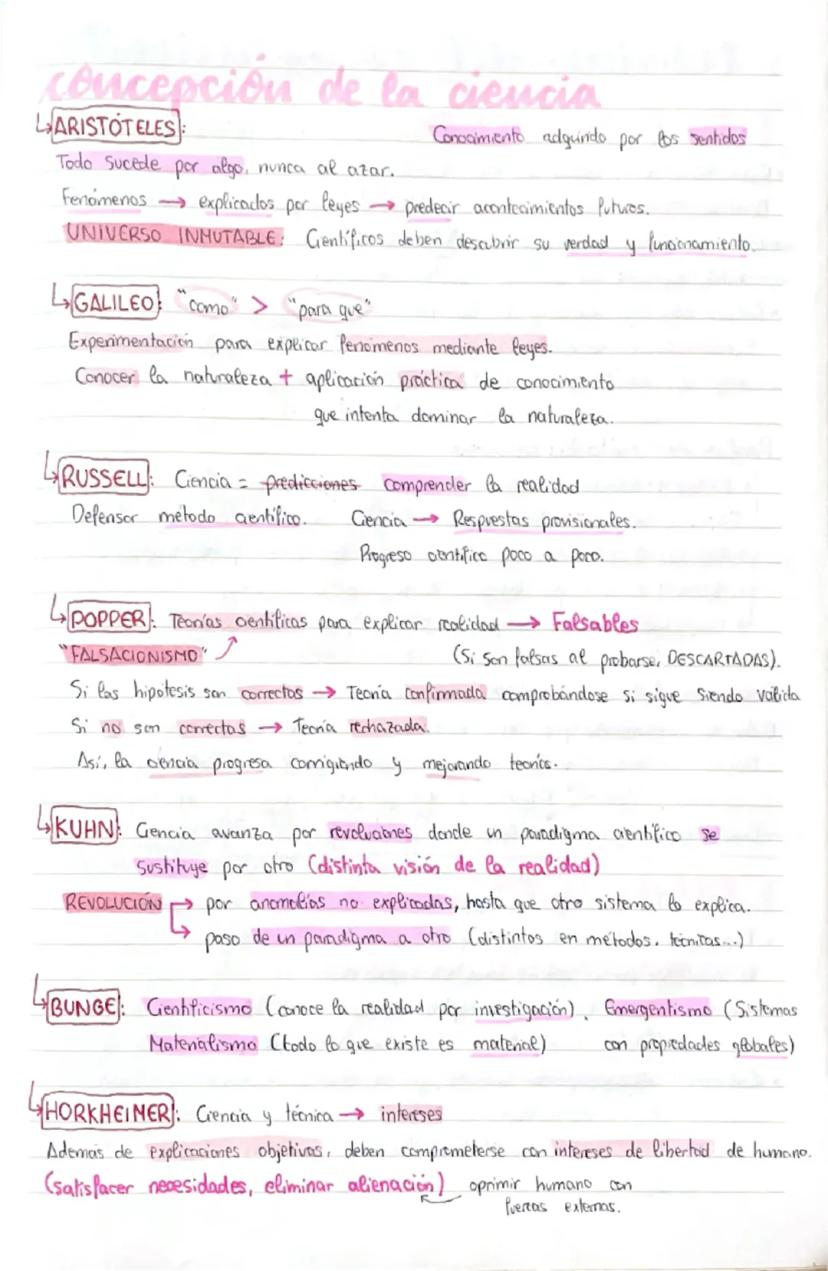 concepción de la ciencia
↳ ARISTÓTELES: Conocimiento adquirido por los sentidos
Todo sucede por algo, nunca al azar.
Fenómenos → explicados por leyes → predecir acontecimientos futuros.
UNIVERSO INMUTABLE: Científicos deben descubrir su verdad y funcionamiento.
↳ GALILEO: "como" > "para que"
Experimentación para explicar fenómenos mediante leyes.
Conocer la naturaleza + aplicación práctica de conocimiento
que intenta dominar la naturaleza.
↳ RUSSELL: Ciencia = predicciones comprender la realidad
Defensor método científico. Ciencia → Respuestas provisionales.
Progreso científico poco a poco.
↳ POPPER: Teorías científicas para explicar realidad → Falsables
"FALSACIONISMO" (Si son falsas al probarse, DESCARTADAS).
Si las hipotesis son correctas → Teoría confirmada comprobándose si sigue siendo válida
Si no son correctas → Teoría rechazada.
Así, la ciencia progresa corrigiendo y mejorando teorías.
↳ KUHN: Ciencia avanza por revoluciones donde un paradigma científico se
sustituye por otro (distinta visión de la realidad)
REVOLUCIÓN → por anomalías no explicadas, hasta que otro sistema lo explica.
↳ paso de un paradigma a otro (distintos en métodos, técnicas...)
↳ BUNGE: Cientificismo (conoce la realidad por investigación). Emergentismo (Sistemas
Materialismo (todo lo que existe es material) con propiedades globales)
↳ HORKHEIMER: Ciencia y técnica → intereses
Además de explicaciones objetivas, deben comprometerse con intereses de libertad de humano.
(satisfacer necesidades, eliminar alienación) oprimir humano con
fuerzas externas.